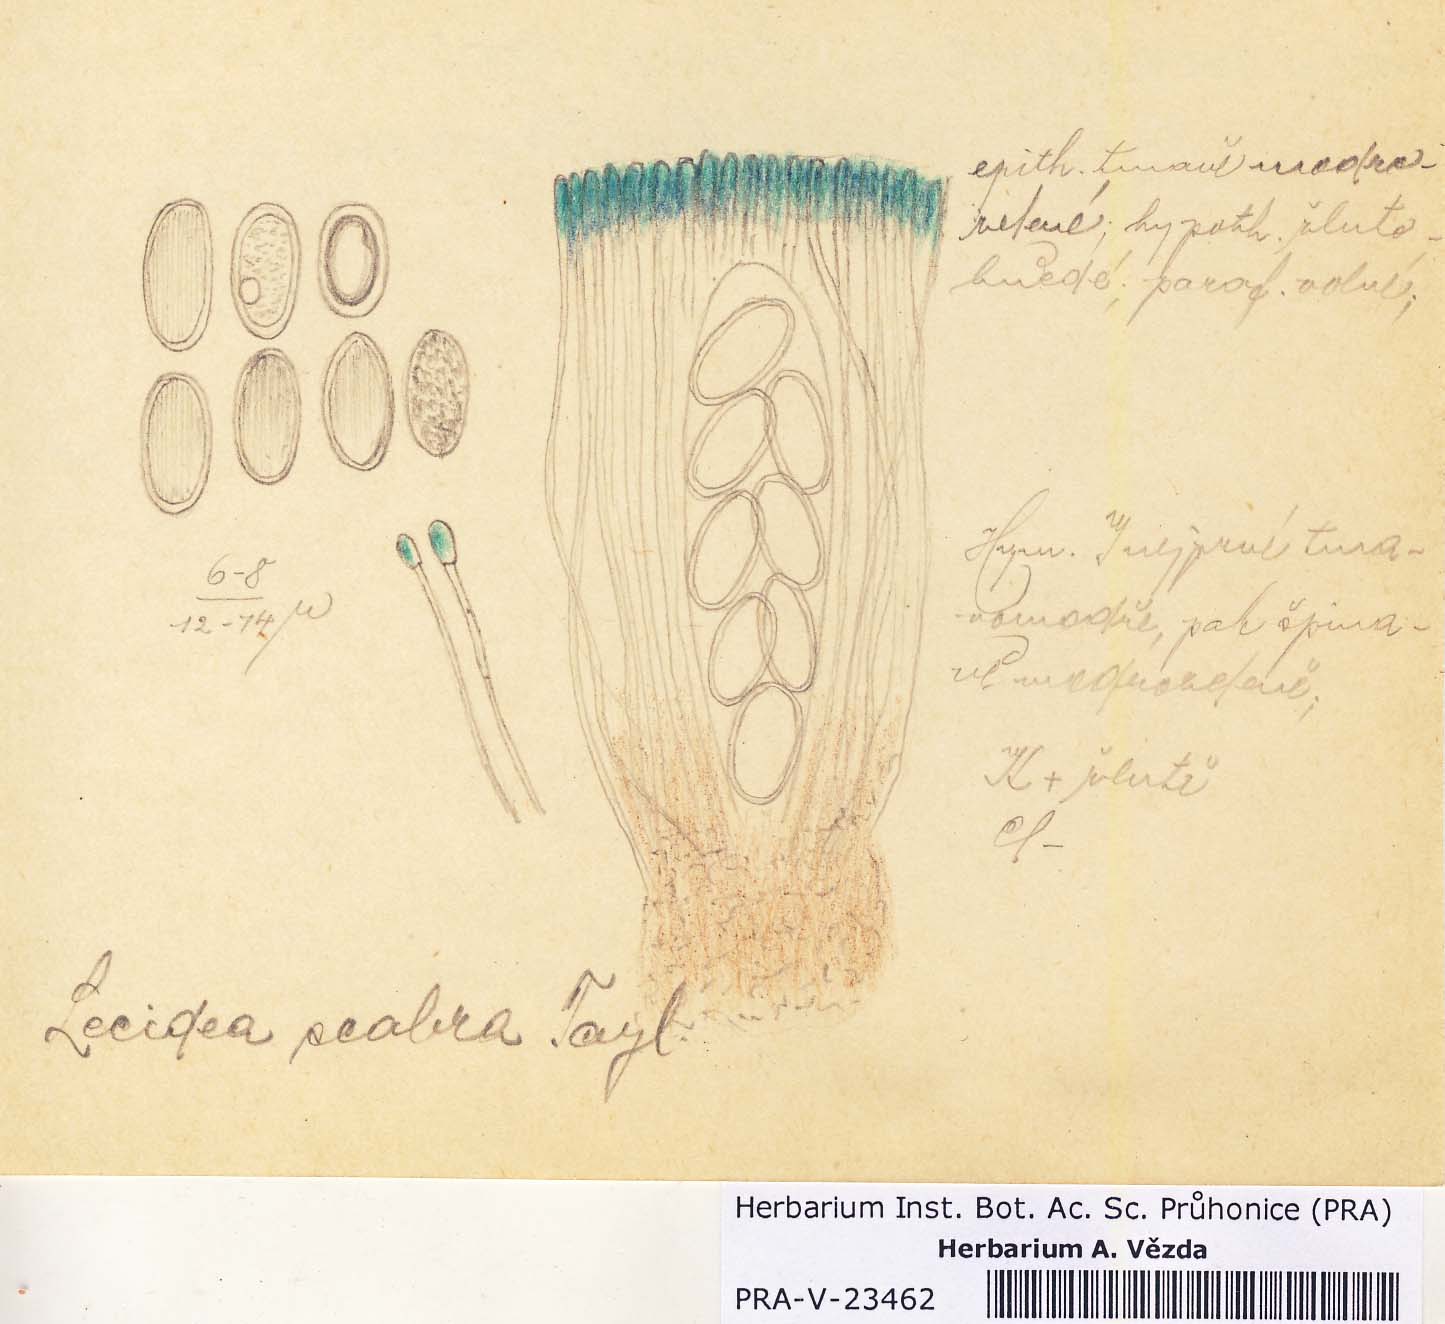 epith. tmavě modro-
zelené; hypoth. žluto-
hnědé; paraf. volné;
6-8
12-14 µ
Hym. J nejprvé tma-
vomodře, pak špina-
vě modrozeleně;
K + žlutě
Cl -
Lecidea scabra Tayl.
Herbarium Inst. Bot. Ac. Sc. Průhonice (PRA)
Herbarium A. Vězda
PRA-V-23462